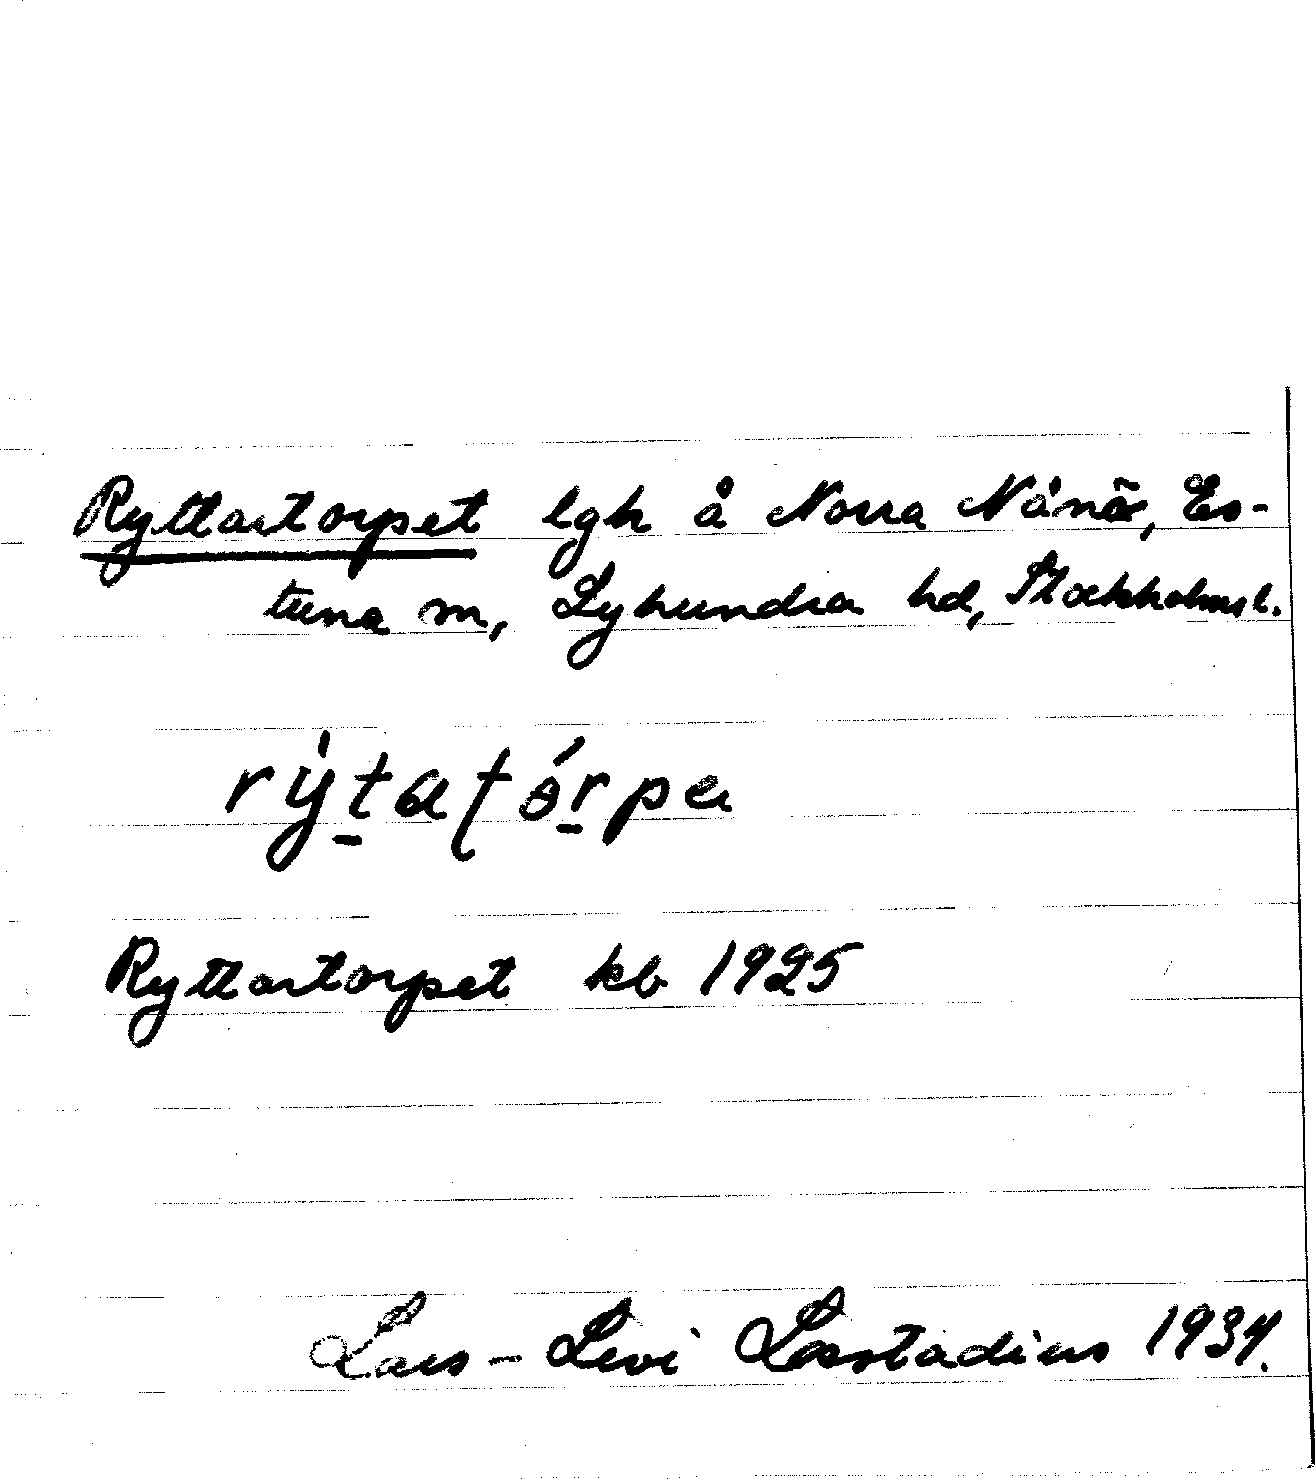 Ryttartorpet lgh å Norra Nånö, Es-
tuna sn, Lyhundra hd, Stockholms l.
rỳtatórpa
Ryttartorpet kb 1925
Lars-Levi Læstadius 1934.